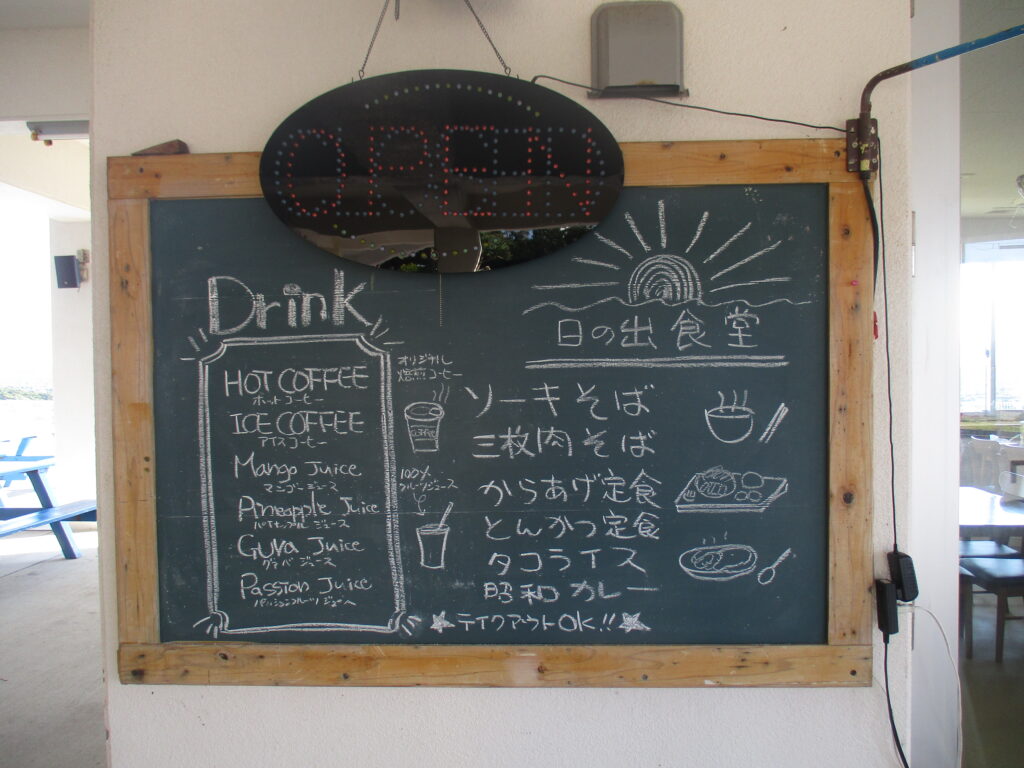 OPEN
Drink
HOT COFFEE
ホットコーヒー
ICE COFFEE
アイスコーヒー
Mango Juice
マンゴージュース
Pineapple Juice
パイナップルジュース
Guva Juice
グァバジュース
Passion Juice
パッションフルーツジュース
オリジナル
焙煎コーヒー
COFFEE
100%
フルーツジュース
日の出食堂
ソーキそば
三枚肉そば
からあげ定食
とんかつ定食
タコライス
昭和カレー
★テイクアウトOK!!★